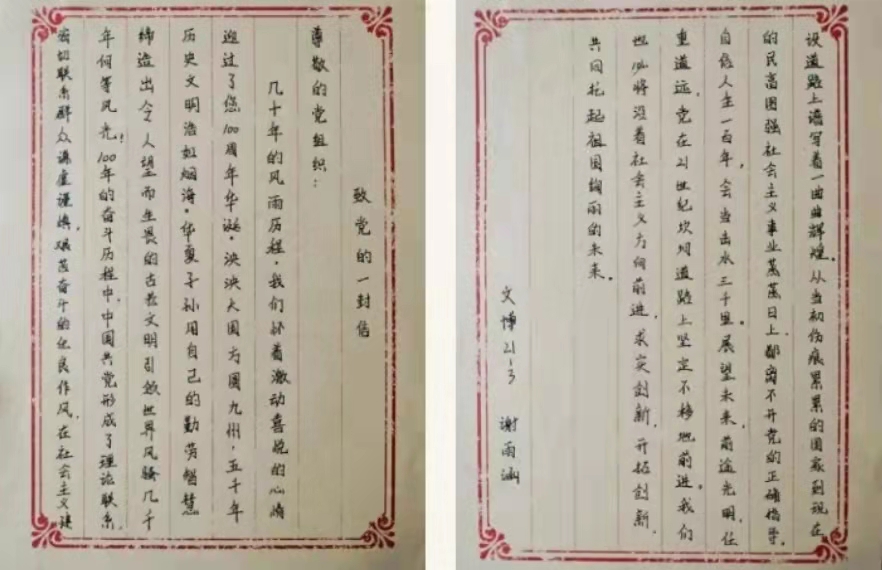 致党的一封信
尊敬的党组织：
几十年的风雨历程，我们怀着激动喜悦的心情
迎过了您100周年华诞，泱泱大国方圆九州，五千年
历史文明浩如烟海，华夏子孙用自己的勤劳智慧
缔造出令人望而生畏的古老文明引领世界风骚几千
年何等风光！100年的奋斗历程中，中国共党形成了理论联系，
密切联系群众谦虚谨慎，艰苦奋斗的优良作风，在社会主义建
设道路上谱写着一曲曲辉煌。从当初伤痕累累的国家到现在
的民富国强社会主义事业蒸蒸日上，都离不开党的正确指导。
自信人生一百年，会当击水三千里。展望未来，前途光明，任
重道远。党在21世纪坎坷道路上坚定不移地前进。我们
也将沿着社会主义方向前进，求实创新，开拓创新，
共同托起祖国绚丽的未来。
文博21-3 谢雨涵